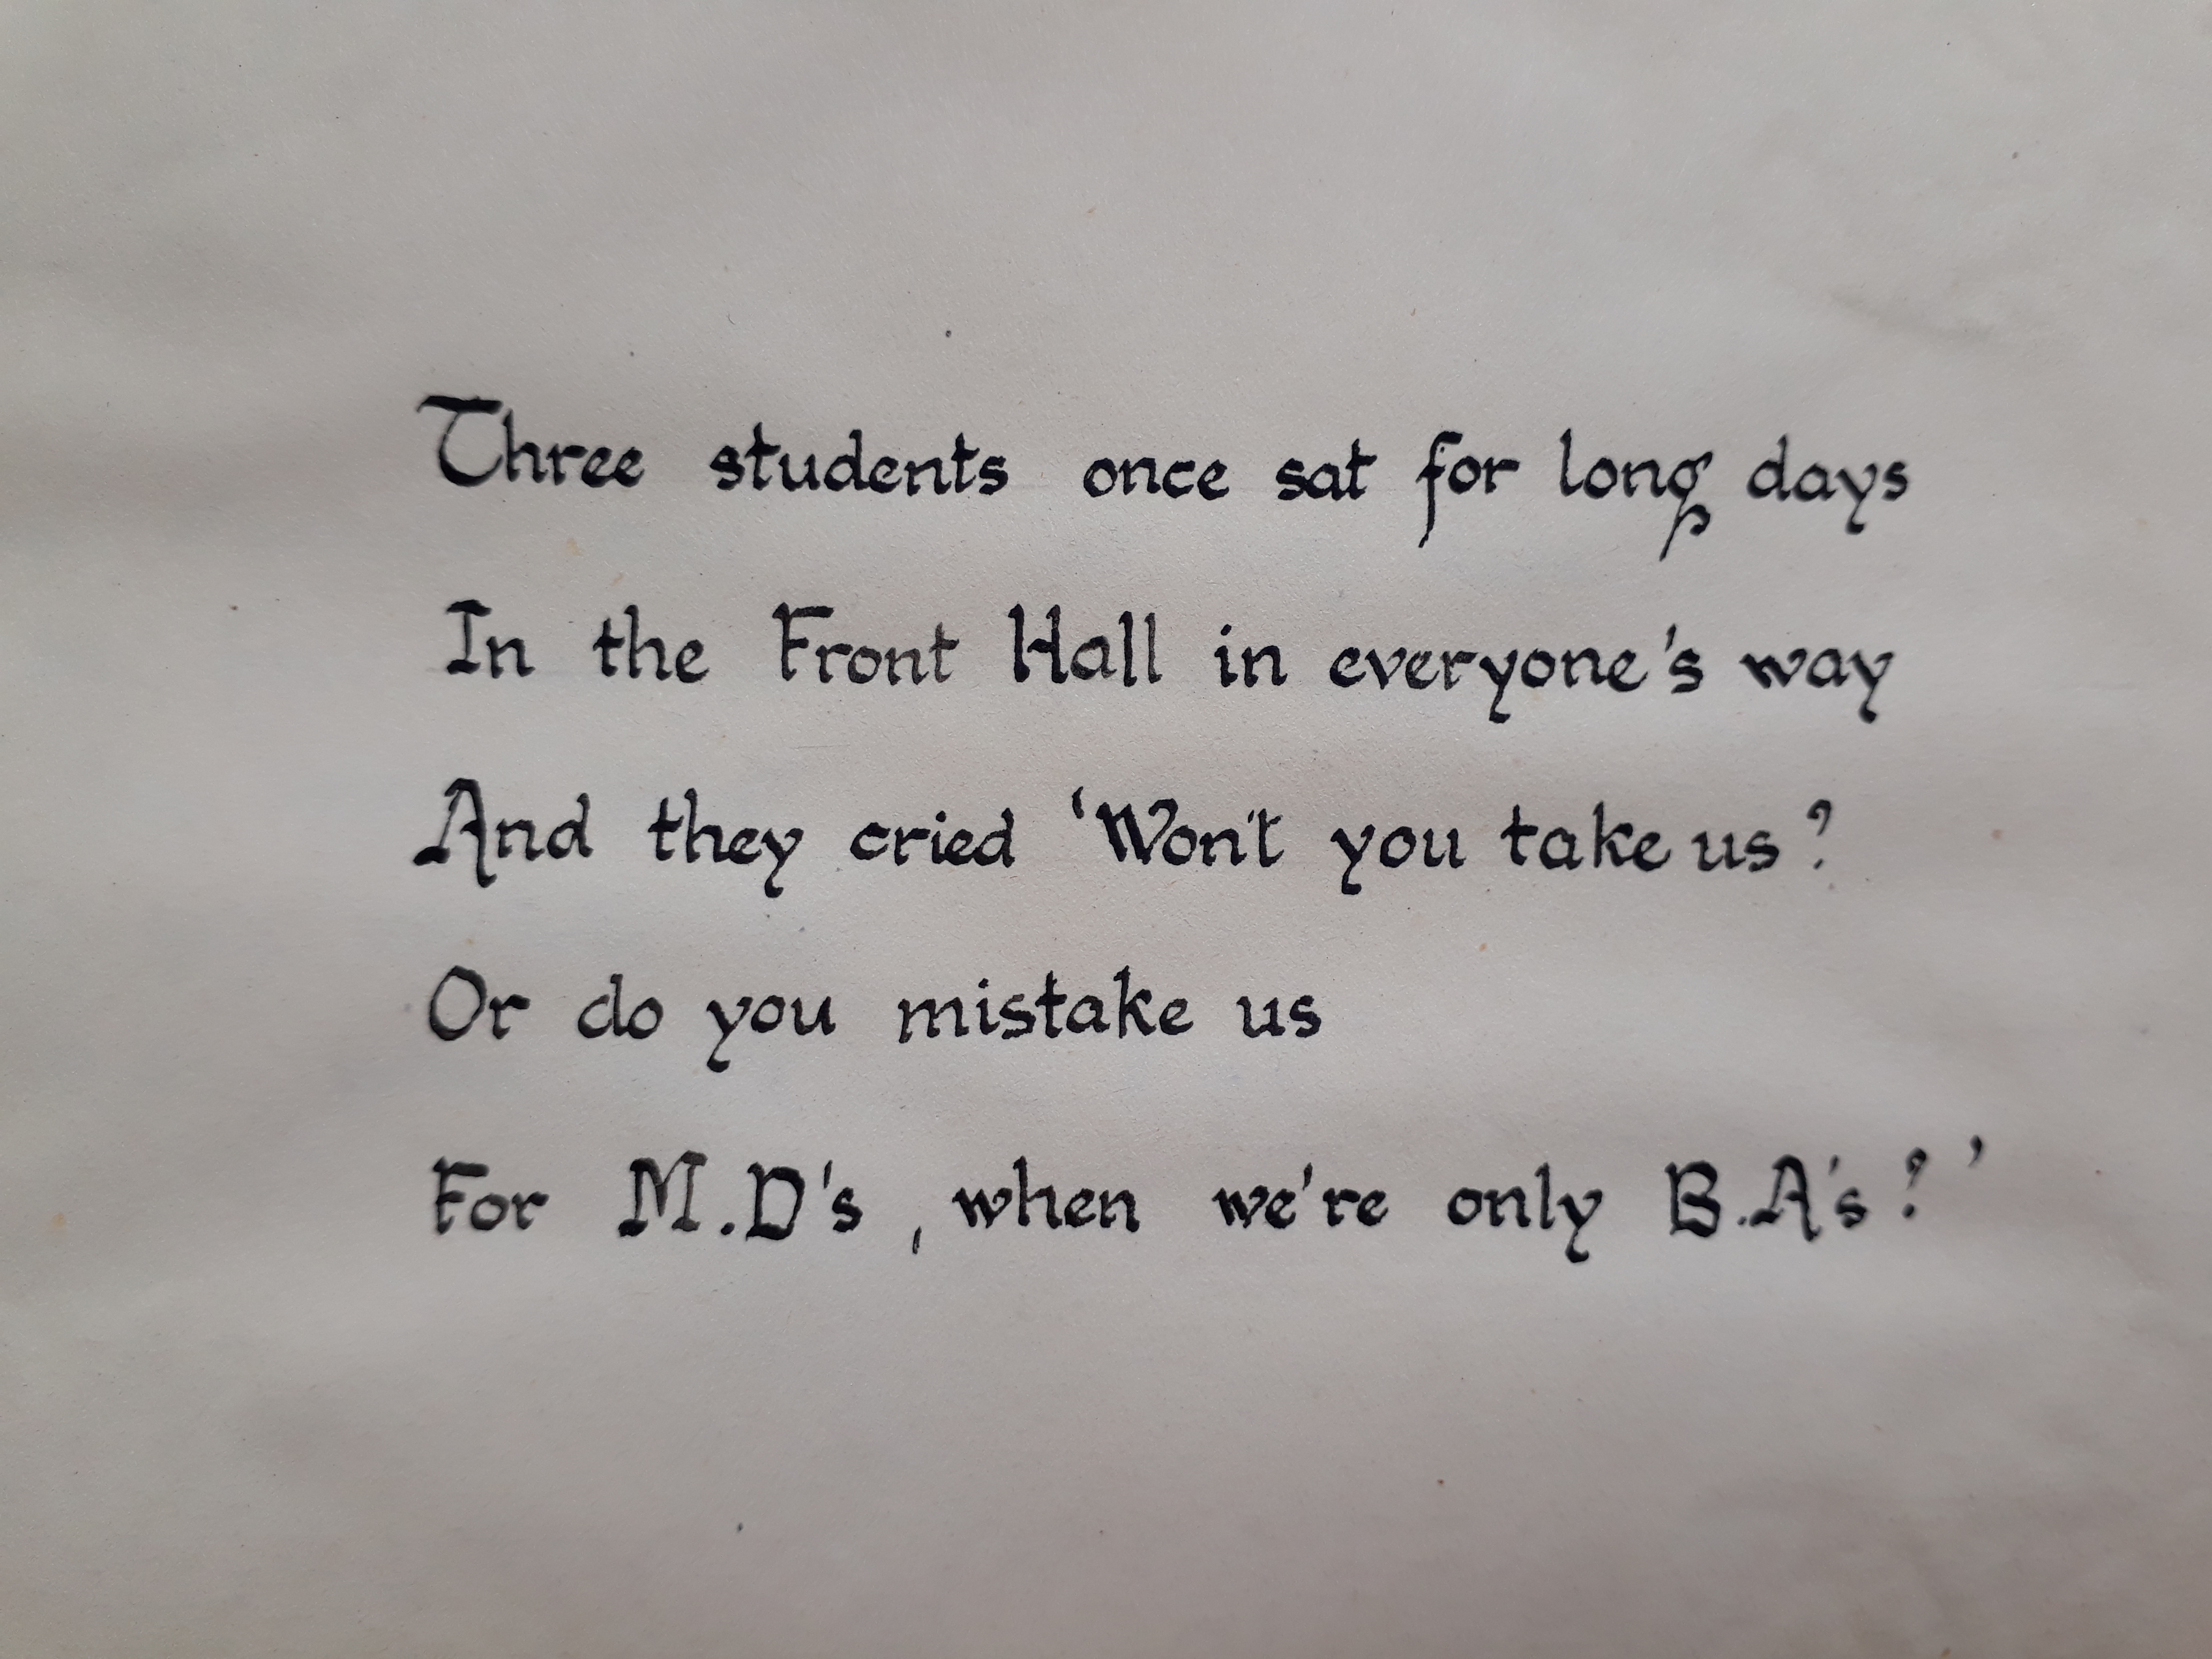 Three students once sat for long days
In the Front Hall in everyone's way
And they cried 'Won't you take us?
Or do you mistake us
For M.D's, when we're only B.A's?'